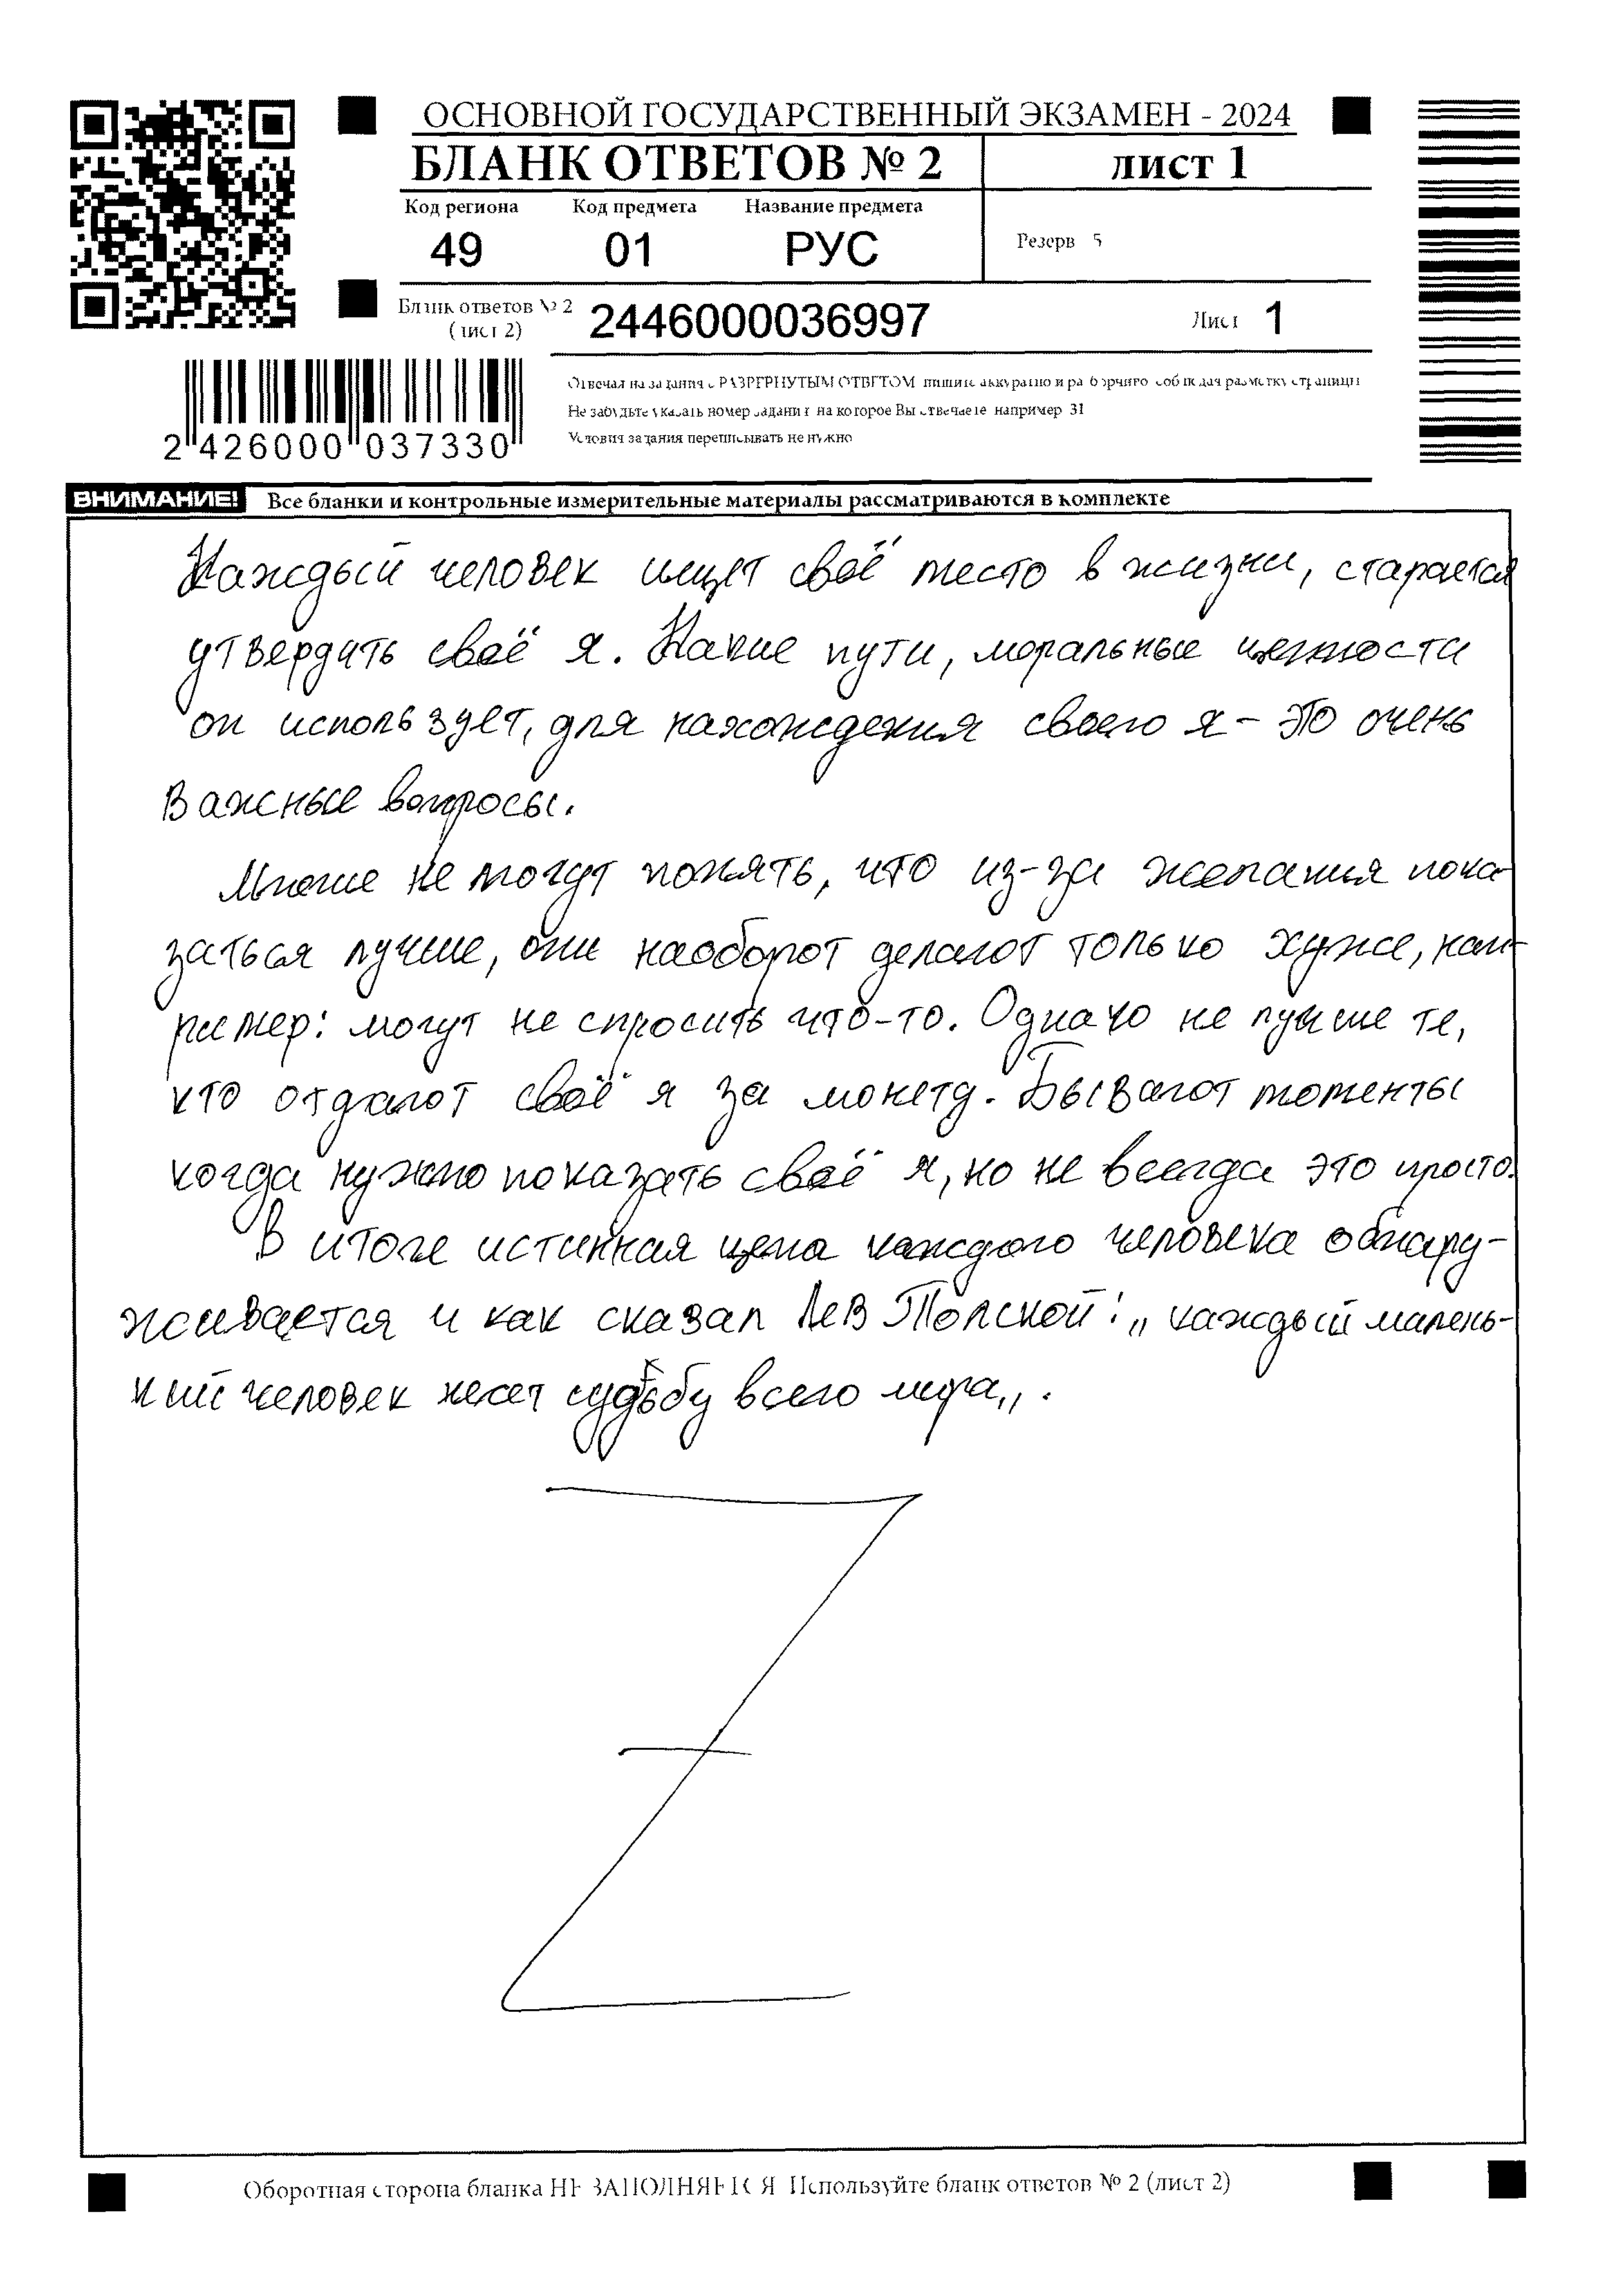 ОСНОВНОЙ ГОСУДАРСТВЕННЫЙ ЭКЗАМЕН - 2024
БЛАНК ОТВЕТОВ № 2
лист 1
Код региона Код предмета Название предмета
49 01 РУС
Резерв 5
Бланк ответов № 2 (лист 2) 2446000036997
Лист 1
Отвечая на задания с РАЗВЕРНУТЫМ ОТВЕТОМ пишите аккуратно и разборчиво соблюдая разметку страницы
Не забудьте указать номер задания на которое Вы отвечаете например 31
Условия задания переписывать не нужно
2 426000 037330
ВНИМАНИЕ! Все бланки и контрольные измерительные материалы рассматриваются в комплекте
Каждый человек ищет своё место в жизни, старается
утвердить своё я. Какие пути, моральные ценности
он использует, для нахождения своего я – это очень
важные вопросы.
Многие не могут понять, что из-за желания пока
заться лучше, они наоборот делают только хуже, нап-
ример: могут не спросить что-то. Однако не лучше те,
кто отдают своё я за монету. Бывают моменты
когда нужно показать своё я, но не всегда это просто.
В итоге истинная цена каждого человека обнару-
живается и как сказал Лев Толской: „каждый малень-
кий человек несет судьбу всего мира„.
Оборотная сторона бланка НЕ ЗАПОЛНЯЕТСЯ Используйте бланк ответов № 2 (лист 2)